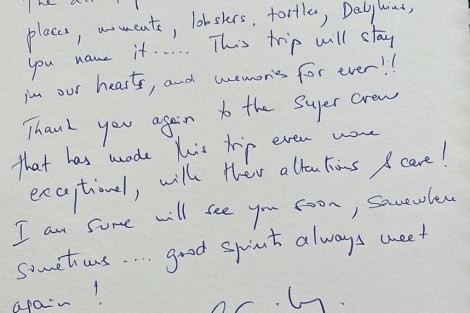 places, moments, lobsters, tortles, Dalphins,
you name it ..... This trip will stay
in our hearts, and memories for ever!!
Thank you again to the Super Crew
that has made this trip even more
exceptionel, with their attentions & care!
I am sure will see you soon, Somewhere
Sometimes .... good spirits always meet
again!